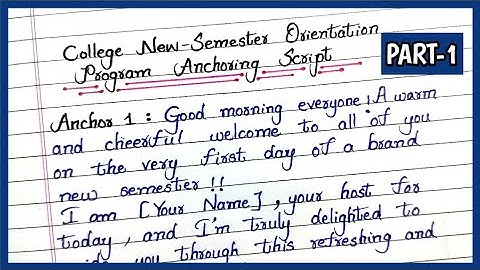 College New-Semester Orientation
Program Anchoring Script
PART-1
Anchor 1 : Good morning everyone! A warm
and cheerful welcome to all of you
on the very first day of a brand
new semester!!
I am [Your Name], your host for
today, and I'm truly delighted to
you through this refreshing and